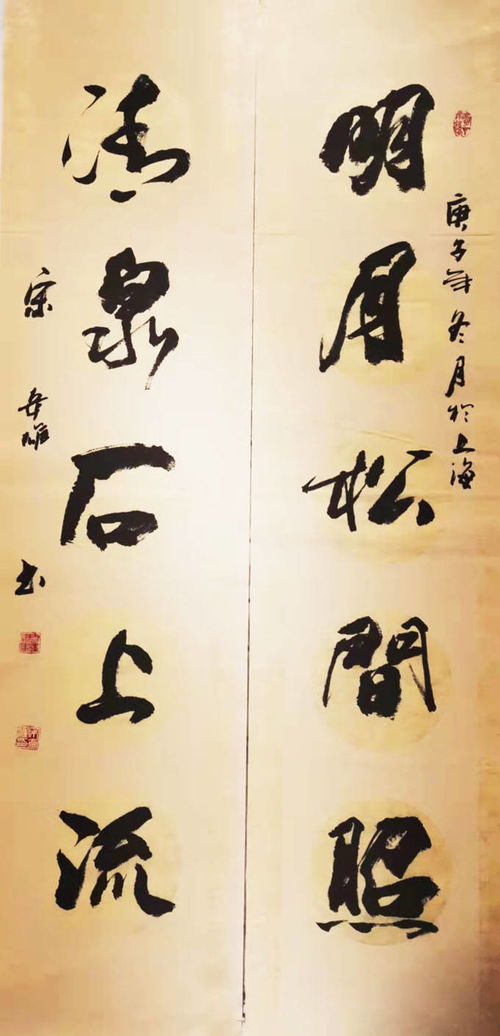 庚子年冬月於上海
明月松間照
清泉石上流
宗岳雄书